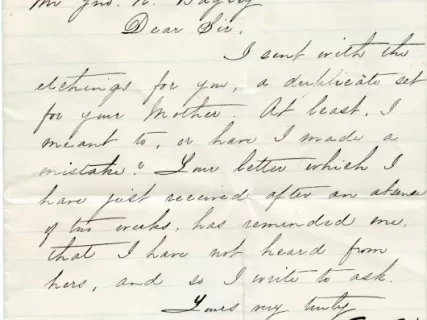 Mr Jno. N. Bagley
Dear Sir,
I sent with the
etchings for you, a duplicate set
for your Mother. At least, I
meant to, or have I made a
mistake? Your letter which I
have just received after an absence
of two weeks, has reminded me,
that I have not heard from
hers, and so I write to ask.
Yours very truly